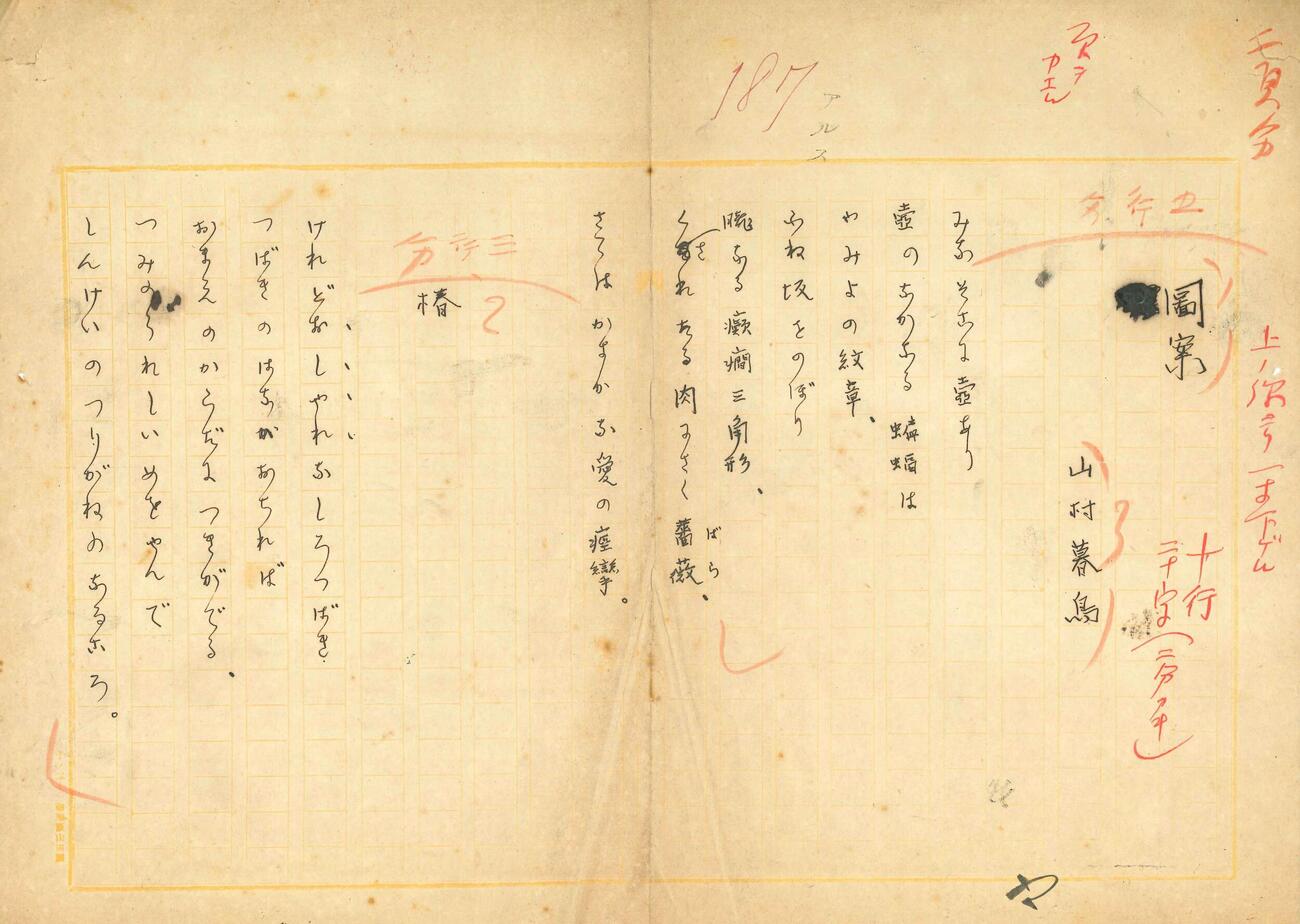 壱頁分
上ノ余白一寸下ゲル
十行
二十字(二分アキ)
頁ヲカエル
五行分
圖案
山村暮鳥
3
みなそこに壺あり
壺のなかなる蝙蝠は
やみよの紋章、
ふね坂をのぼり
朧なる癲癇三角形、
くさればら
たる肉にさく薔薇、
さては かすかな愛の痙攣。
187
アルス
三行分
椿
2
けれどおしやれなしろつばき
つばきのはながおちれば
おまえのからだにつきがでる、
つみのうれしいめをやんで
しんけいのつりがねのなるころ。
や